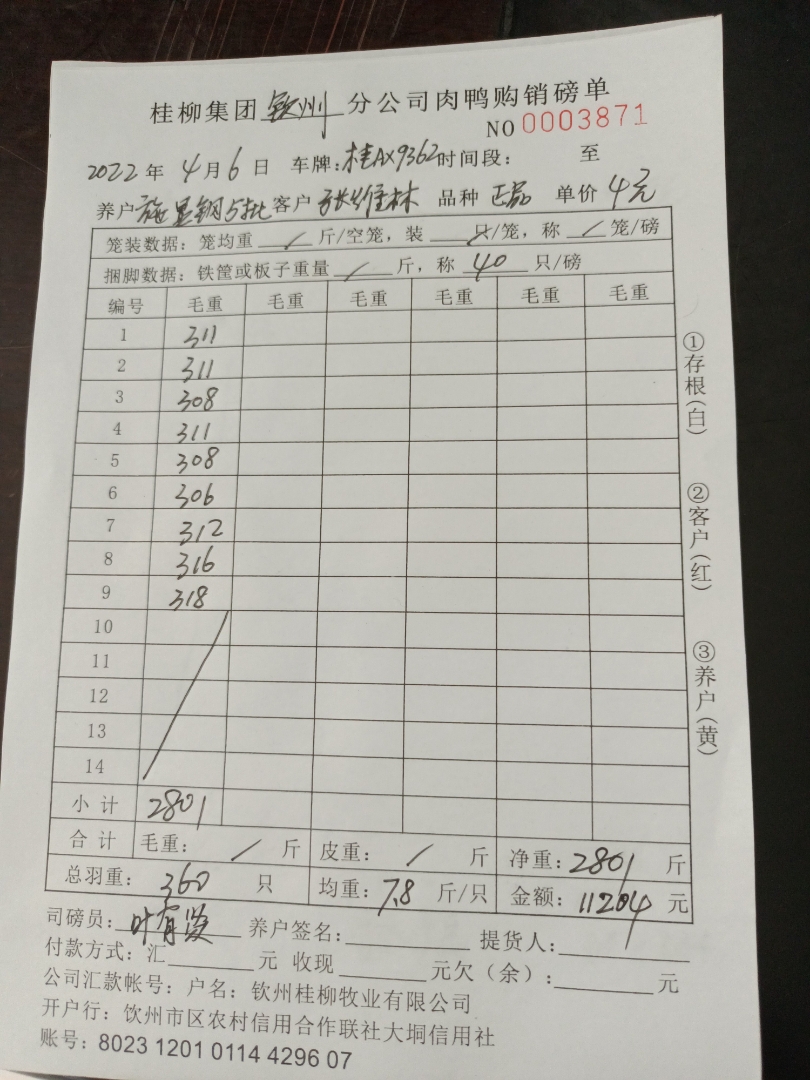 桂柳集团 钦州 分公司肉鸭购销磅单
NO 0003871
2022 年 4 月 6 日 车牌:桂AX9362 时间段: 至
养户 施显钢5批 客户 张维林 品种 正品 单价 4元
笼装数据:笼均重 / 斤/空笼,装 / 只/笼,称 / 笼/磅
捆脚数据:铁筐或板子重量 / 斤,称 40 只/磅
编号 毛重 毛重 毛重 毛重 毛重 毛重
1 311
2 311
3 308
4 311
5 308
6 306
7 312
8 316
9 318
10
11
12
13
14
小计 2801
合计 毛重: / 斤 皮重: / 斤 净重:2801 斤
总羽重: 360 只 均重:7.8 斤/只 金额:11204 元
司磅员:叶有贤 养户签名: 提货人:
付款方式:汇 元 收现 元欠(余): 元
公司汇款帐号:户名:钦州桂柳牧业有限公司
开户行:钦州市区农村信用合作联社大垌信用社
账号:8023 1201 0114 4296 07
①存根(白) ②客户(红) ③养户(黄)